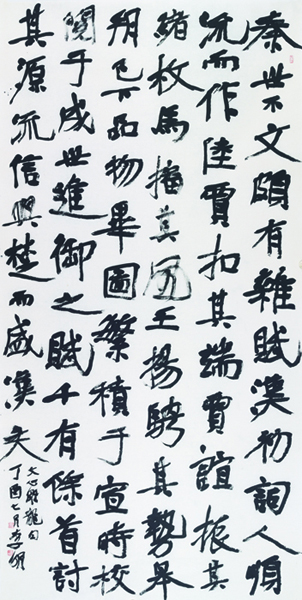 秦世不文頗有雜賦漢初詞人順
流而作陸賈扣其端賈誼振其
緒枚馬播其風王揚騁其勢皋
朔已下品物畢圖繁積于宣時校
閱于成世進御之賦千有餘首討
其源流信興楚而盛漢矣
文心雕龍句
丁酉七月